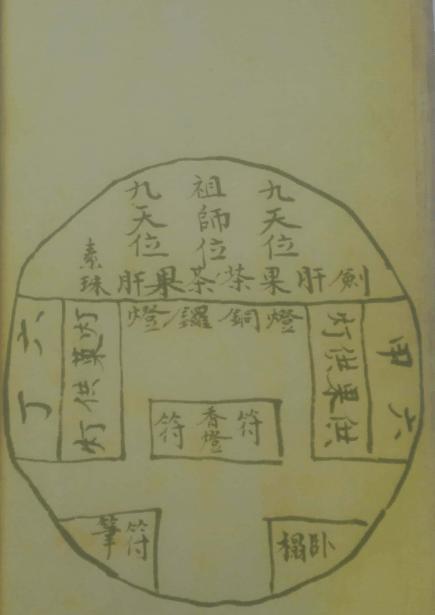 九天位
祖師位
九天位
劍肝果茶茶果肝素珠
燈銅鑼燈
六甲
灯供果供
六丁
灯菓供灯
符香燈符
卧榻
符筆